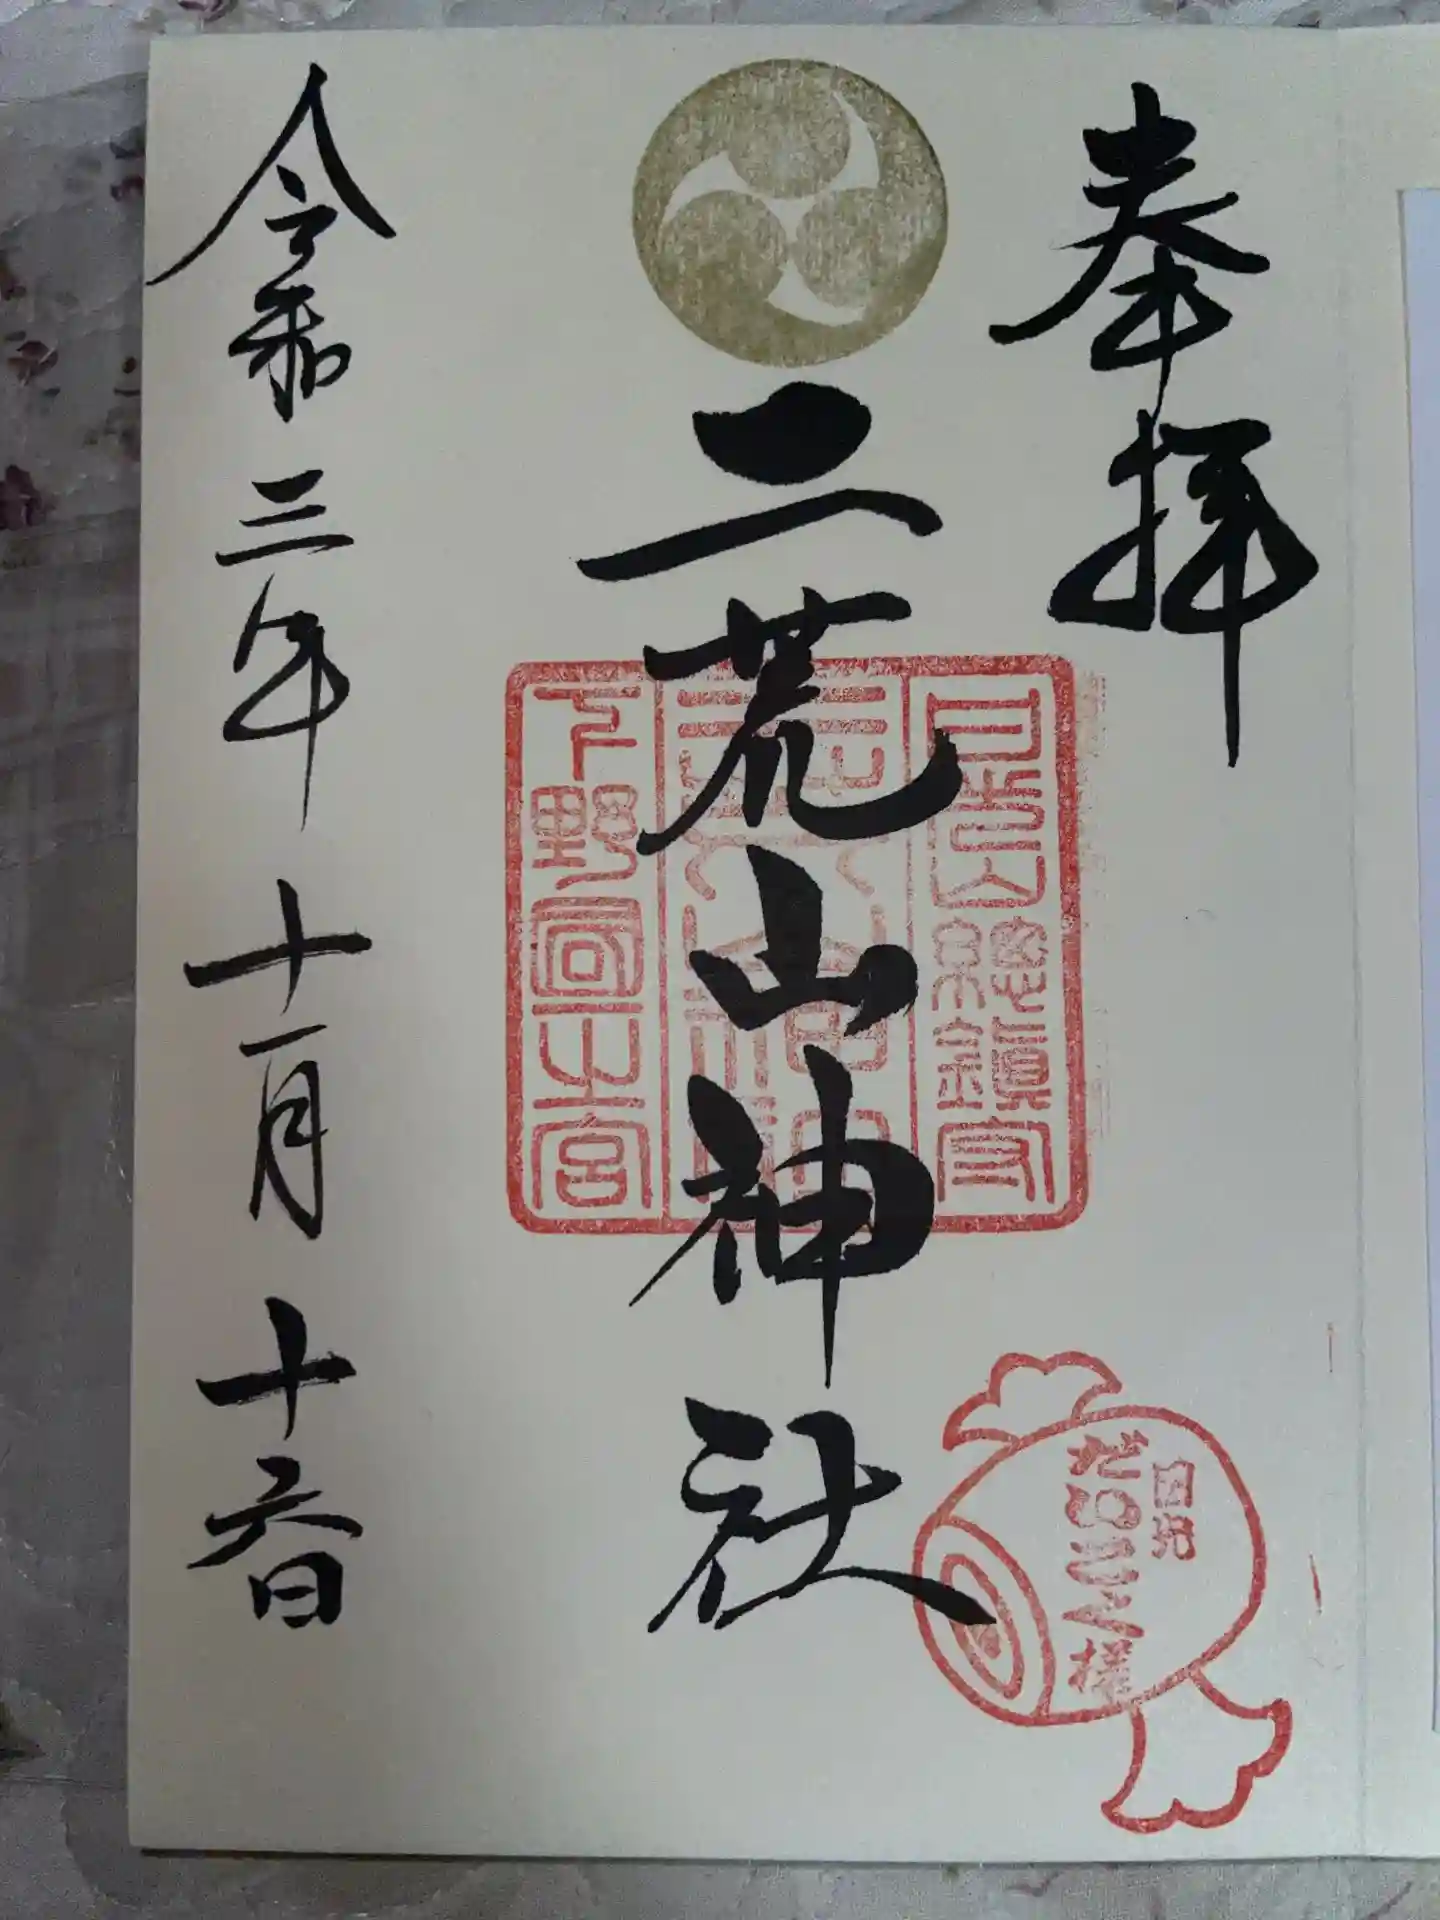 奉拝
日光山總鎮守
二荒山神社
下野國一之宮
令和三年 十一月 十六日
日光
だいこく様